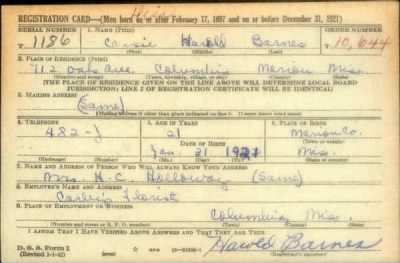 REGISTRATION CARD—(Men born on or after February 17, 1897 and on or before December 31, 1921)
SERIAL NUMBER 1. NAME (Print) ORDER NUMBER
T 1186 Cassie Harold Barnes 10,644
(First) (Middle) (Last)
2. PLACE OF RESIDENCE (Print)
712 Oak Ave. Columbia Marion Miss.
(Number and street) (Town, township, village, or city) (County) (State)
[THE PLACE OF RESIDENCE GIVEN ON THE LINE ABOVE WILL DETERMINE LOCAL BOARD
JURISDICTION; LINE 2 OF REGISTRATION CERTIFICATE WILL BE IDENTICAL]
3. MAILING ADDRESS
(Same)
[Mailing address if other than place indicated on line 2. If same insert word same]
4. TELEPHONE 5. AGE IN YEARS 6. PLACE OF BIRTH
482-J 21 Marion Co.
DATE OF BIRTH (Town or county)
Jan. 31 1921 Miss.
(Exchange) (Number) (Mo.) (Day) (Yr.) (State or country)
7. NAME AND ADDRESS OF PERSON WHO WILL ALWAYS KNOW YOUR ADDRESS
Mrs. H. C. Holloway (Same)
8. EMPLOYER'S NAME AND ADDRESS
Florist
9. PLACE OF EMPLOYMENT OR BUSINESS
Columbia Miss.
(Number and street or R. F. D. number) (Town) (County) (State)
I AFFIRM THAT I HAVE VERIFIED ABOVE ANSWERS AND THAT THEY ARE TRUE.
D. S. S. Form 1
(Revised 1-1-42) (over) Harold Barnes